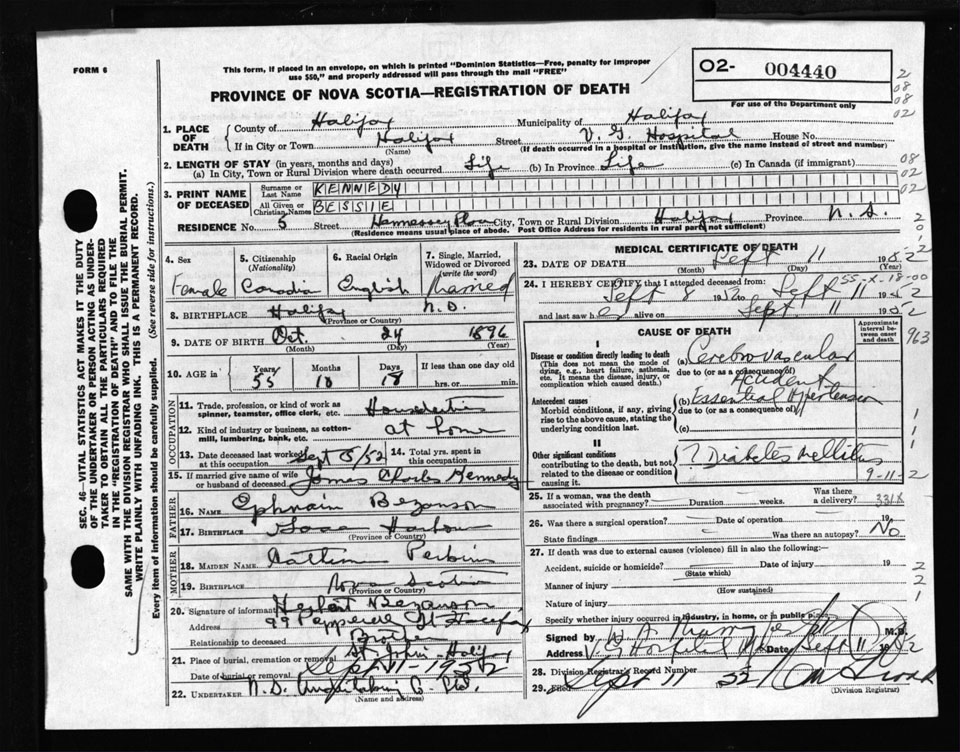 FORM 6
This form, if placed in an envelope, on which is printed "Dominion Statistics—Free, penalty for improper
use $50," and properly addressed will pass through the mail "FREE"
O2- 004440
For use of the Department only
PROVINCE OF NOVA SCOTIA—REGISTRATION OF DEATH
1. PLACE OF DEATH
County of Halifax Municipality of Halifax
If in City or Town Halifax Street V. G. Hospital House No.
(Name) (If death occurred in a hospital or institution, give the name instead of street and number)
2. LENGTH OF STAY (in years, months and days)
(a) In City, Town or Rural Division where death occurred Life (b) In Province Life (c) In Canada (if immigrant)
3. PRINT NAME OF DECEASED
Surname or Last Name KENNEDY
All Given or Christian Names BESSIE
RESIDENCE No. 5 Street Hennessey Place City, Town or Rural Division Halifax Province N.S.
(Residence means usual place of abode. Post Office Address for residents in rural parts not sufficient)
4. Sex Female
5. Citizenship (Nationality) Canadian
6. Racial Origin English
7. Single, Married, Widowed or Divorced (write the word) Married
8. BIRTHPLACE Halifax N.S.
(Province or Country)
9. DATE OF BIRTH Oct. 24 1896
(Month) (Day) (Year)
10. AGE in Years 55 Months 10 Days 18 If less than one day old
hrs. or min.
OCCUPATION
11. Trade, profession, or kind of work as
spinner, teamster, office clerk, etc.
12. Kind of industry or business, as cotton-
mill, lumbering, bank, etc. at home
13. Date deceased last worked at this occupation Sept 5/52
14. Total yrs. spent in this occupation
15. If married give name of wife
or husband of deceased James Charles Kennedy
FATHER
16. NAME Ephraim Bezanson
17. BIRTHPLACE Harbour
(Province or Country)
MOTHER
18. MAIDEN NAME
19. BIRTHPLACE Nova Scotia
(Province or Country)
20. Signature of informant Herbert Bezanson
Address 99 Pepperell St Halifax
Relationship to deceased Brother
21. Place of burial, cremation or removal St. John Halifax
Date of burial or removal 1952
22. UNDERTAKER N.S. Undertaking Co. Ltd.
(Name and address)
MEDICAL CERTIFICATE OF DEATH
23. DATE OF DEATH Sept 11 1952
(Month) (Day) (Year)
24. I HEREBY CERTIFY that I attended deceased from: 55-X-18-00
Sept 8 1952 to Sept 11 1952
and last saw her alive on Sept 11 1952
CAUSE OF DEATH
Approximate interval between onset and death
963
I
Disease or condition directly leading to death
(This does not mean the mode of
dying, e.g., heart failure, asthenia,
etc. It means the disease, injury, or
complication which caused death.)
(a) Cerebrovascular
due to (or as a consequence of)
Accident
Antecedent causes
Morbid conditions, if any, giving
rise to the above cause, stating the
underlying condition last.
(b) Essential Hypertension
due to (or as a consequence of)
(c)
II
Other significant conditions
contributing to the death, but not
related to the disease or condition
causing it.
? Diabetes Mellitus
9-11-2
25. If a woman, was the death
associated with pregnancy? Duration weeks. Was there a delivery? 331X
26. Was there a surgical operation? Date of operation 19
State findings Was there an autopsy? No
27. If death was due to external causes (violence) fill in also the following:—
Accident, suicide or homicide? Date of injury 19
(State which)
Manner of injury
(How sustained)
Nature of injury
Specify whether injury occurred in industry, in home, or in public place
Signed by M.D.
Address V.G. Hospital Date Sept 11 1952
28. Division Registrar's Record Number
29. Filed Sept 11 52
(Division Registrar)
SEC. 46—VITAL STATISTICS ACT MAKES IT THE DUTY
OF THE UNDERTAKER OR PERSON ACTING AS UNDER-
TAKER TO OBTAIN ALL THE PARTICULARS REQUIRED
IN THE "REGISTRATION OF DEATH" AND TO FILE THE
SAME WITH THE DIVISION REGISTRAR WHO SHALL ISSUE THE BURIAL PERMIT.
WRITE PLAINLY WITH UNFADING INK. THIS IS A PERMANENT RECORD.
Every item of information should be carefully supplied. (See reverse side for instructions.)